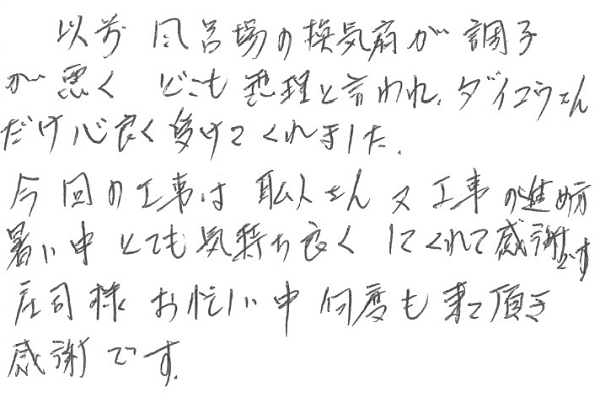 以前 風呂場の換気扇が調子
が悪く どこも無理と言われ、ダイコウさん
だけ心良く受けてくれました。
今回の工事は 職人さん 又 工事の進め方
暑い中 とても気持ち良く してくれて感謝です
庄司様 お忙しい中 何度も来て頂き
感謝です。